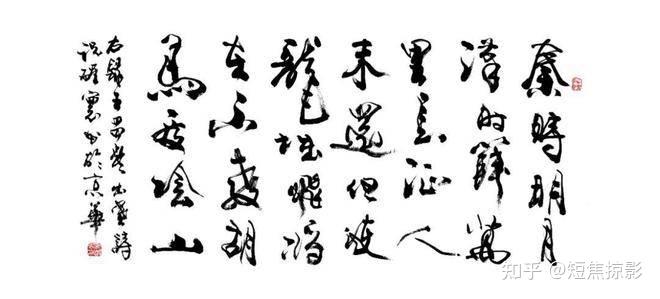 秦時明月
漢時關萬
里長征人
未還但使
龍城飛將
在不教胡
馬度陰山
右錄王昌齡出塞詩
書於京華
知乎 @短焦掠影